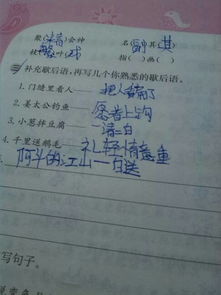 会神 名 其
指( )画( )
补充歇后语,再写几个你熟悉的歇后语。
1. 门缝里看人——把人看扁了
2. 姜太公钓鱼——愿者上钩
3. 小葱拌豆腐——一清二白
4. 千里送鹅毛——礼轻情意重
阿斗的江山——白送
写句子。